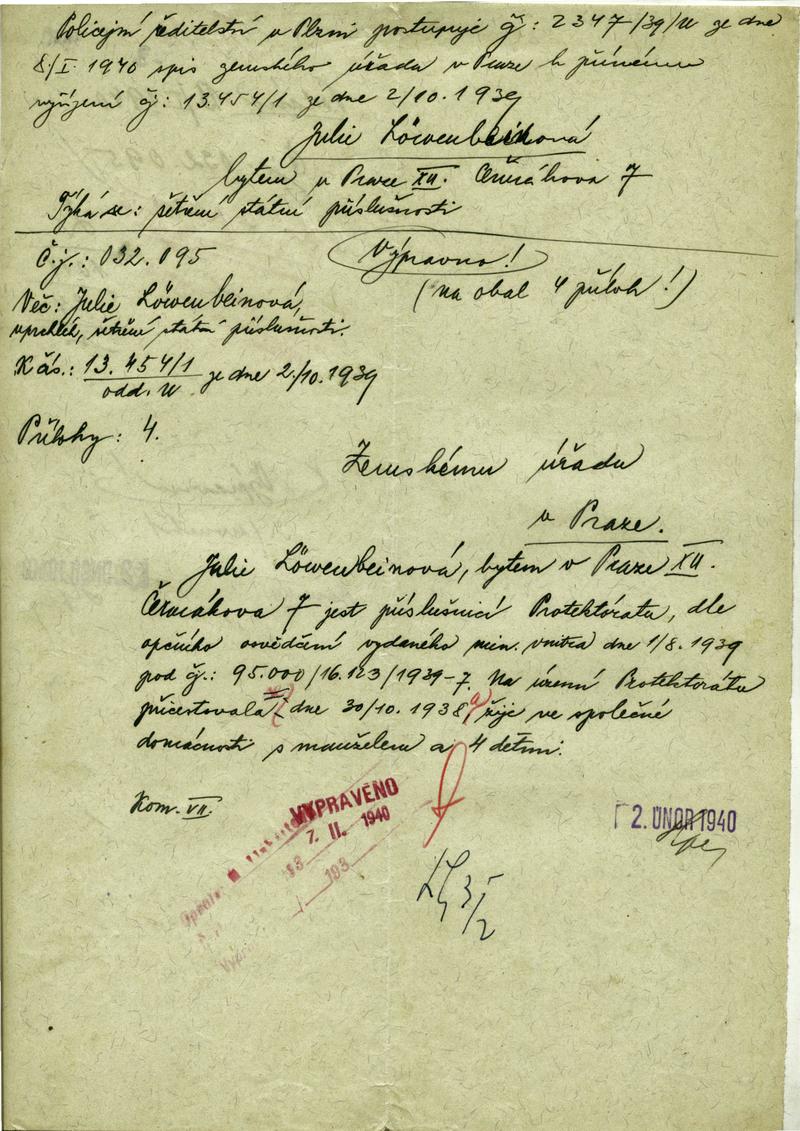 Policejní ředitelství v Plzni postupuje čj: 2347/39/U ze dne
8/I. 1940 spis zemského úřadu v Praze k přímému
vyřízení čj: 13.454/1 ze dne 2/10. 1939
Julie Löwenbeinová
bytem v Praze XII. Čermákova 7
Týká se: šetření státní příslušnosti
Č.j.: 032.095
Výpravno!
(na obal 4 příloh!)
Věc: Julie Löwenbeinová,
uprchlí, šetření státní příslušnosti.
K čís.: 13.454/1 ze dne 2./10. 1939
odd.
Přílohy: 4.
Zemskému úřadu
v Praze.
Julie Löwenbeinová, bytem v Praze XII.
Čermákova 7 jest příslušnicí Protektorátu, dle
opčního osvědčení vydaného min. vnitra dne 1/8. 1939
pod čj.: 95.000/16.123/1939-7. Na území Protektorátu
přicestovala dne 30/10. 1938 a žije ve společné
domácnosti s manželem a 4 dětmi.
Kom. VII.
VYPRAVENO
7. II. 1940
193
2. ÚNOR 1940
3/2